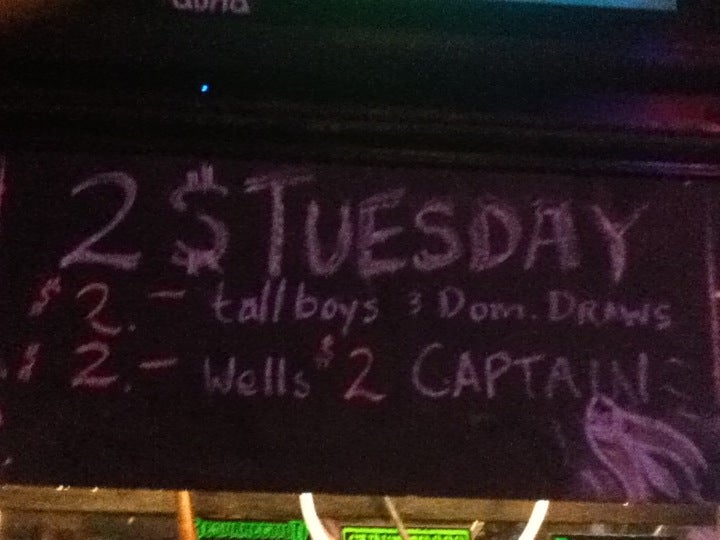 2 $ TUESDAY
$2.- tall boys & Dom. DRAWS
$2.- Wells $2 CAPTAIN